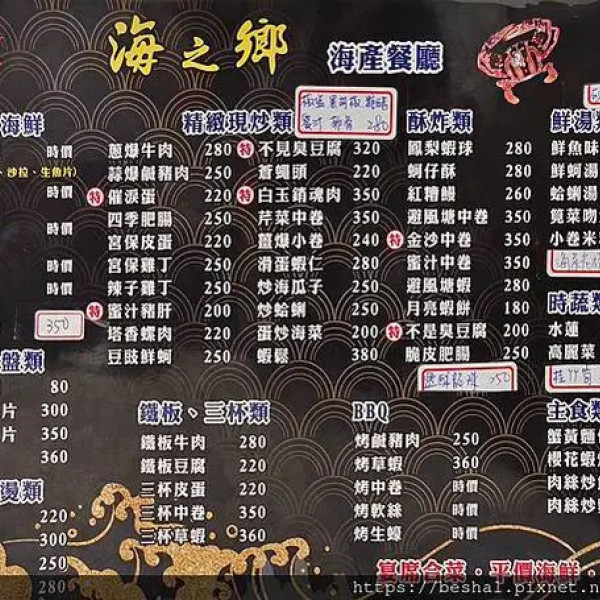 海之鄉 海產餐廳
海鮮
時價
、沙拉、生魚片)
時價
時價
時價
時價
350
盤類
80
片 300
片 350
360
燙類
220
300
250
280
精緻現炒類
蔥爆牛肉 280
蒜爆鹹豬肉 250
特 催淚蛋 220
四季肥腸 250
宮保皮蛋 220
宮保雞丁 250
辣子雞丁 250
特 蜜汁豬肝 200
塔香螺肉 220
豆豉鮮蚵 250
特 不見臭豆腐 320
蒼蠅頭 220
特 白玉銷魂肉 350
芹菜中卷 350
薑爆小卷 240
滑蛋蝦仁 280
炒海瓜子 250
炒蛤蜊 250
蛋炒海菜 200
蝦鬆 380
280
酥炸類
鳳梨蝦球 280
蚵仔酥 280
紅糟鰻 260
避風塘中卷 350
特 金沙中卷 350
蜜汁中卷 350
避風塘蝦 280
月亮蝦餅 180
特 不是臭豆腐 200
脆皮肥腸 250
350
鮮湯類
鮮魚味
鮮蚵湯
蛤蜊湯
莧菜吻
小卷米
時蔬類
水蓮
高麗菜
主食類
蟹黃麵
櫻花蝦炒
肉絲炒飯
肉絲炒
鐵板、三杯類
鐵板牛肉 280
鐵板豆腐 220
三杯皮蛋 220
三杯中卷 350
三杯草蝦 360
BBQ
烤鹹豬肉 250
烤草蝦 360
烤中卷 時價
烤軟絲 時價
烤生蠔 時價
宴席合菜．平價海鮮．
https://beshal.pixnet.n